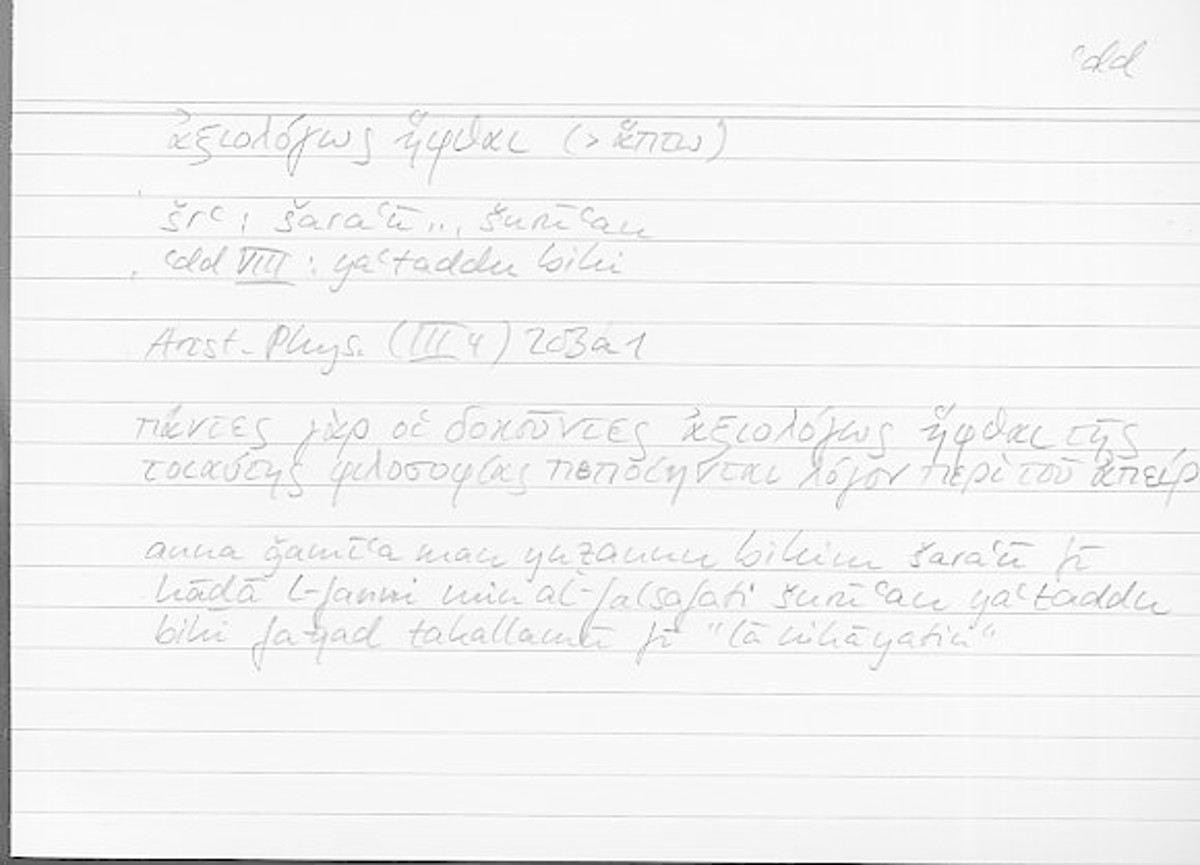 ʿdd
ἀξιολόγως ἥφθαι (> ἅπτω)
šrʿ : šaraʿū ... šurūʿan
ʿdd VIII : yaʿtaddu bihi
Arist. Phys. (III 4) 203a1
πάντες γὰρ οἱ δοκοῦντες ἀξιολόγως ἧφθαι τῆς
τοιαύτης φιλοσοφίας πεποίηνται λόγον περὶ τοῦ ἀπείρ
anna ǧamīʿa man yuẓannu bihim šaraʿū fī
hāḏā l-fanni min al-falsafati šurūʿan yaʿtaddu
bihi fa-qad takallamū fī "lā nihāyatin"